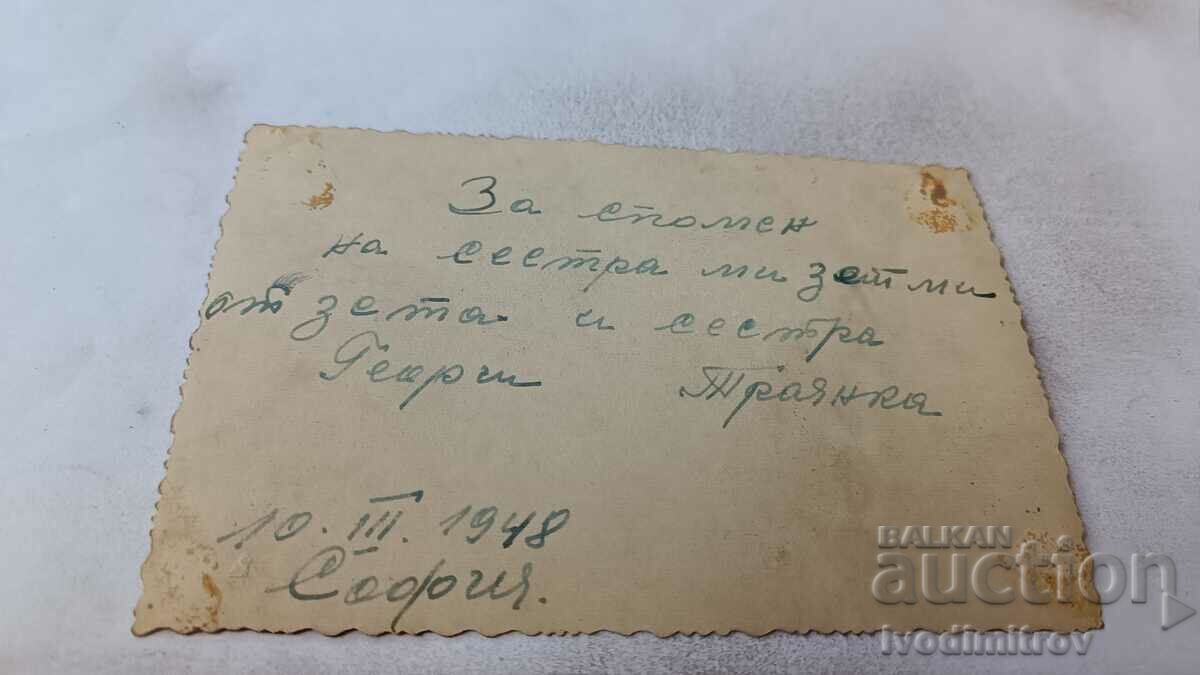 За спомен
на сестра ми зет ми
от зета и сестра
Георги Траянка
10. III. 1948
София.
BALKAN
auction
ivodimitrov